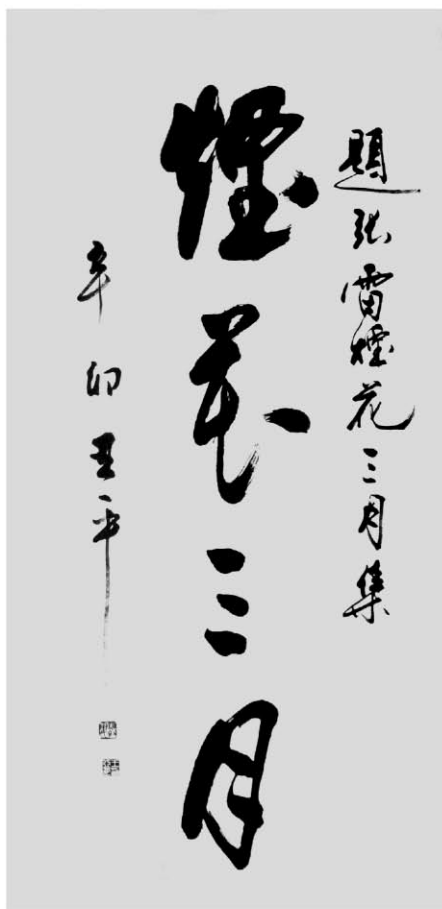 題張雷煙花三月集
煙花三月
辛卯平